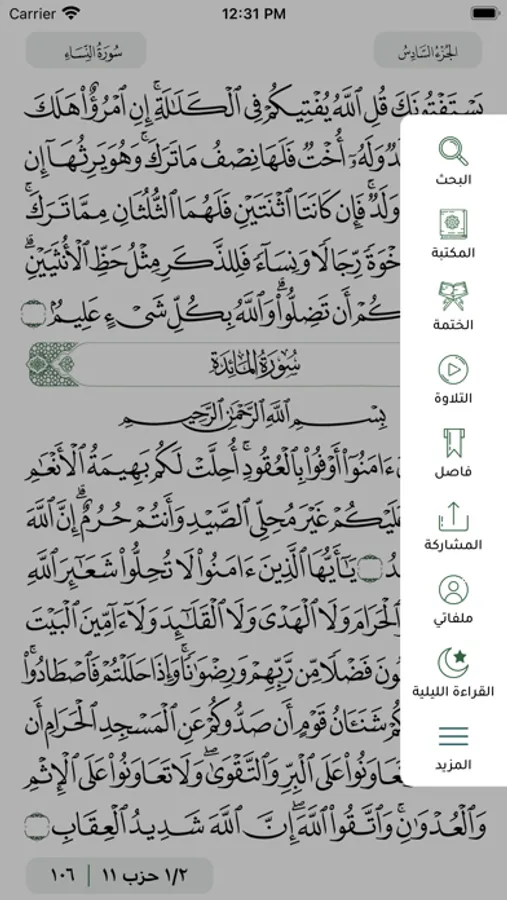 Carrier 12:31 PM
الجُزْءُ السَّادِسُ
سُورَةُ النِّسَاءِ
يَسْتَفْتُونَكَ قُلِ ٱللَّهُ يُفْتِيكُمْ فِى ٱلْكَلَـٰلَةِ ۚ إِنِ ٱمْرُؤٌا۟ هَلَكَ
وَلَهُۥٓ أُخْتٌ فَلَهَا نِصْفُ مَا تَرَكَ ۚ وَهُوَ يَرِثُهَآ إِن
وَلَدٌ ۚ فَإِن كَانَتَا ٱثْنَتَيْنِ فَلَهُمَا ٱلثُّلُثَانِ مِمَّا تَرَكَ ۚ
خْوَةً رِّجَالًا وَنِسَآءً فَلِلذَّكَرِ مِثْلُ حَظِّ ٱلْأُنثَيَيْنِ ۗ
كُمْ أَن تَضِلُّوا۟ ۗ وَٱللَّهُ بِكُلِّ شَىْءٍ عَلِيمٌۢ
سُورَةُ المَائِدَةِ
بِسْمِ ٱللَّهِ ٱلرَّحْمَـٰنِ ٱلرَّحِيمِ
ءَامَنُوٓا۟ أَوْفُوا۟ بِٱلْعُقُودِ ۚ أُحِلَّتْ لَكُم بَهِيمَةُ ٱلْأَنْعَـٰمِ
عَلَيْكُمْ غَيْرَ مُحِلِّى ٱلصَّيْدِ وَأَنتُمْ حُرُمٌ ۗ إِنَّ ٱللَّهَ
دُ يَـٰٓأَيُّهَا ٱلَّذِينَ ءَامَنُوا۟ لَا تُحِلُّوا۟ شَعَـٰٓئِرَ ٱللَّهِ
ٱلْحَرَامَ وَلَا ٱلْهَدْىَ وَلَا ٱلْقَلَـٰٓئِدَ وَلَآ ءَآمِّينَ ٱلْبَيْتَ
ونَ فَضْلًا مِّن رَّبِّهِمْ وَرِضْوَٰنًا ۚ وَإِذَا حَلَلْتُمْ فَٱصْطَادُوا۟ ۚ
كُمْ شَنَـَٔانُ قَوْمٍ أَن صَدُّوكُمْ عَنِ ٱلْمَسْجِدِ ٱلْحَرَامِ أَن
تَعَاوَنُوا۟ عَلَى ٱلْبِرِّ وَٱلتَّقْوَىٰ ۖ وَلَا تَعَاوَنُوا۟ عَلَى ٱلْإِثْمِ
وَٱلْعُدْوَٰنِ ۚ وَٱتَّقُوا۟ ٱللَّهَ ۖ إِنَّ ٱللَّهَ شَدِيدُ ٱلْعِقَابِ
١/٢ حزب ١١ | ١٠٦
البحث
المكتبة
الختمة
التلاوة
فاصل
المشاركة
ملفاتي
القراءة الليلية
المزيد